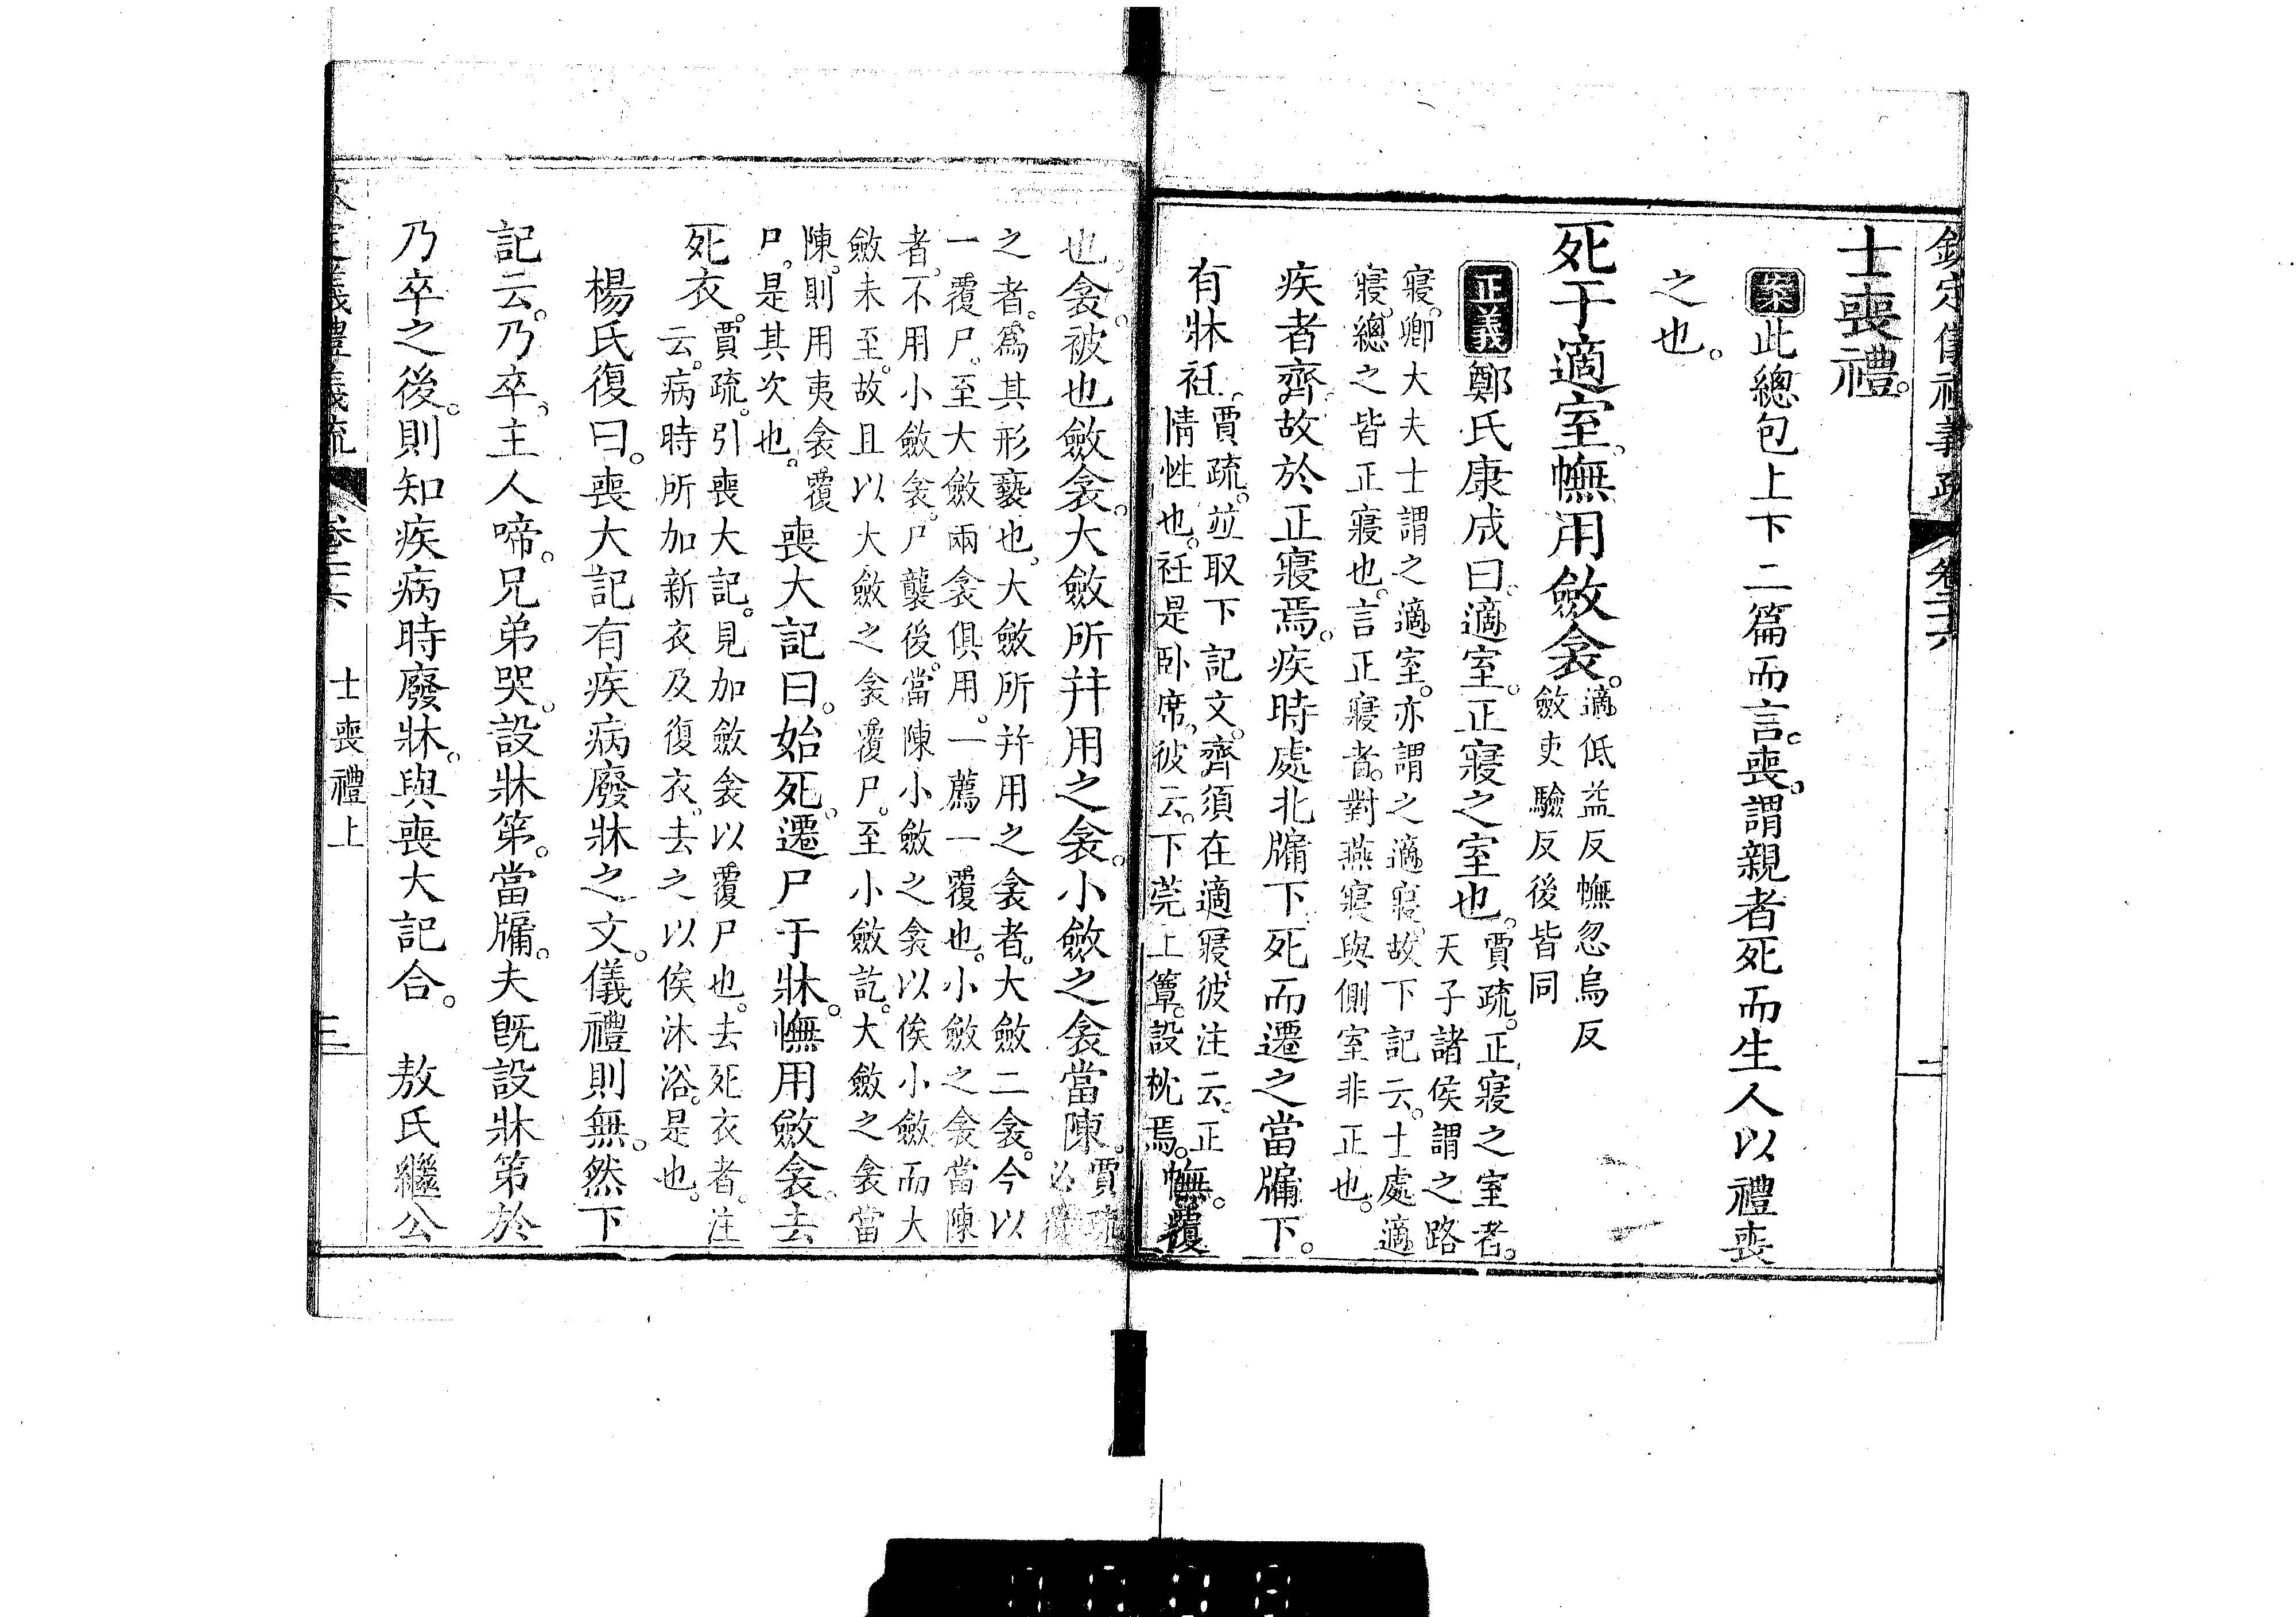 欽定儀禮義疏 卷二六 一
士喪禮。
案此總包上下二篇而言。喪。謂親者死而生人以禮喪
之也。
死于適室。幠用斂衾。適低益反幠忽烏反
斂吏驗反後皆同
正義鄭氏康成曰。適室。正寢之室也。賈疏。正寢之室者。
天子諸侯謂之路
寢。卿大夫士謂之適室。亦謂之適寢。故下記云。士處適
寢。總之皆正寢也。言正寢者。對燕寢與側室非正也。
疾者齊。故於正寢焉。疾時處北牖下。死而遷之當牖下。
有牀衽。賈疏。竝取下記文。齊須在適寢。彼注云。正
情性也。衽是卧席。彼云。下莞上簟。設枕焉。幠。覆
也。衾。被也。斂衾。大斂所并用之衾。小斂之衾當陳。賈疏
必覆
之者。爲其形褻也。大斂所并用之衾者。大斂二衾。今以
一覆尸。至大斂兩衾俱用。一薦一覆也。小斂之衾當陳
者。不用小斂衾。尸襲後。當陳小斂之衾以俟小斂。而大
斂未至。故且以大斂之衾覆尸。至小斂訖。大斂之衾當
陳。則用夷衾覆
尸。是其次也。
喪大記曰。始死。遷尸于牀。幠用斂衾。去
死衣。賈疏。引喪大記。見加斂衾以覆尸也。去死衣者。注
云。病時所加新衣及復衣。去之以俟沐浴。是也。
楊氏復曰。喪大記有疾病廢牀之文。儀禮則無。然下
記云。乃卒。主人啼。兄弟哭。設牀笫。當牖。夫旣設牀笫於
乃卒之後。則知疾病時廢牀。與喪大記合。 敖氏繼公
義禮義疏 卷二六 士喪禮上